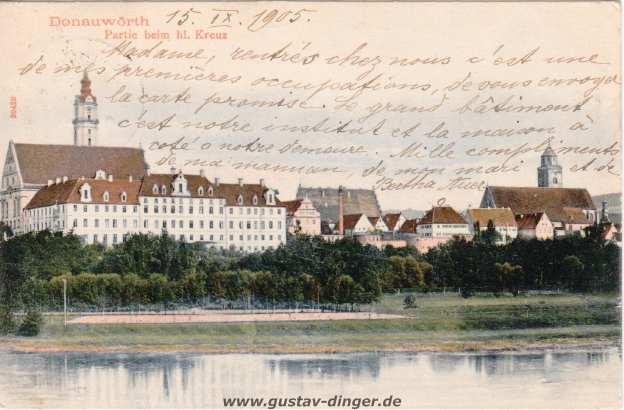 Donauwörth
Partie beim hl. Kreuz
15. IX. 1905.
Madame, rentrés chez nous c'est une
de mes premières occupations, de vous envoyer
la carte promise. Le grand bâtiment
c'est notre institut et la maison à
coté o notre demeure. Mille compliments
de ma maman, de mon mari et de
Bertha
www.gustav-dinger.de